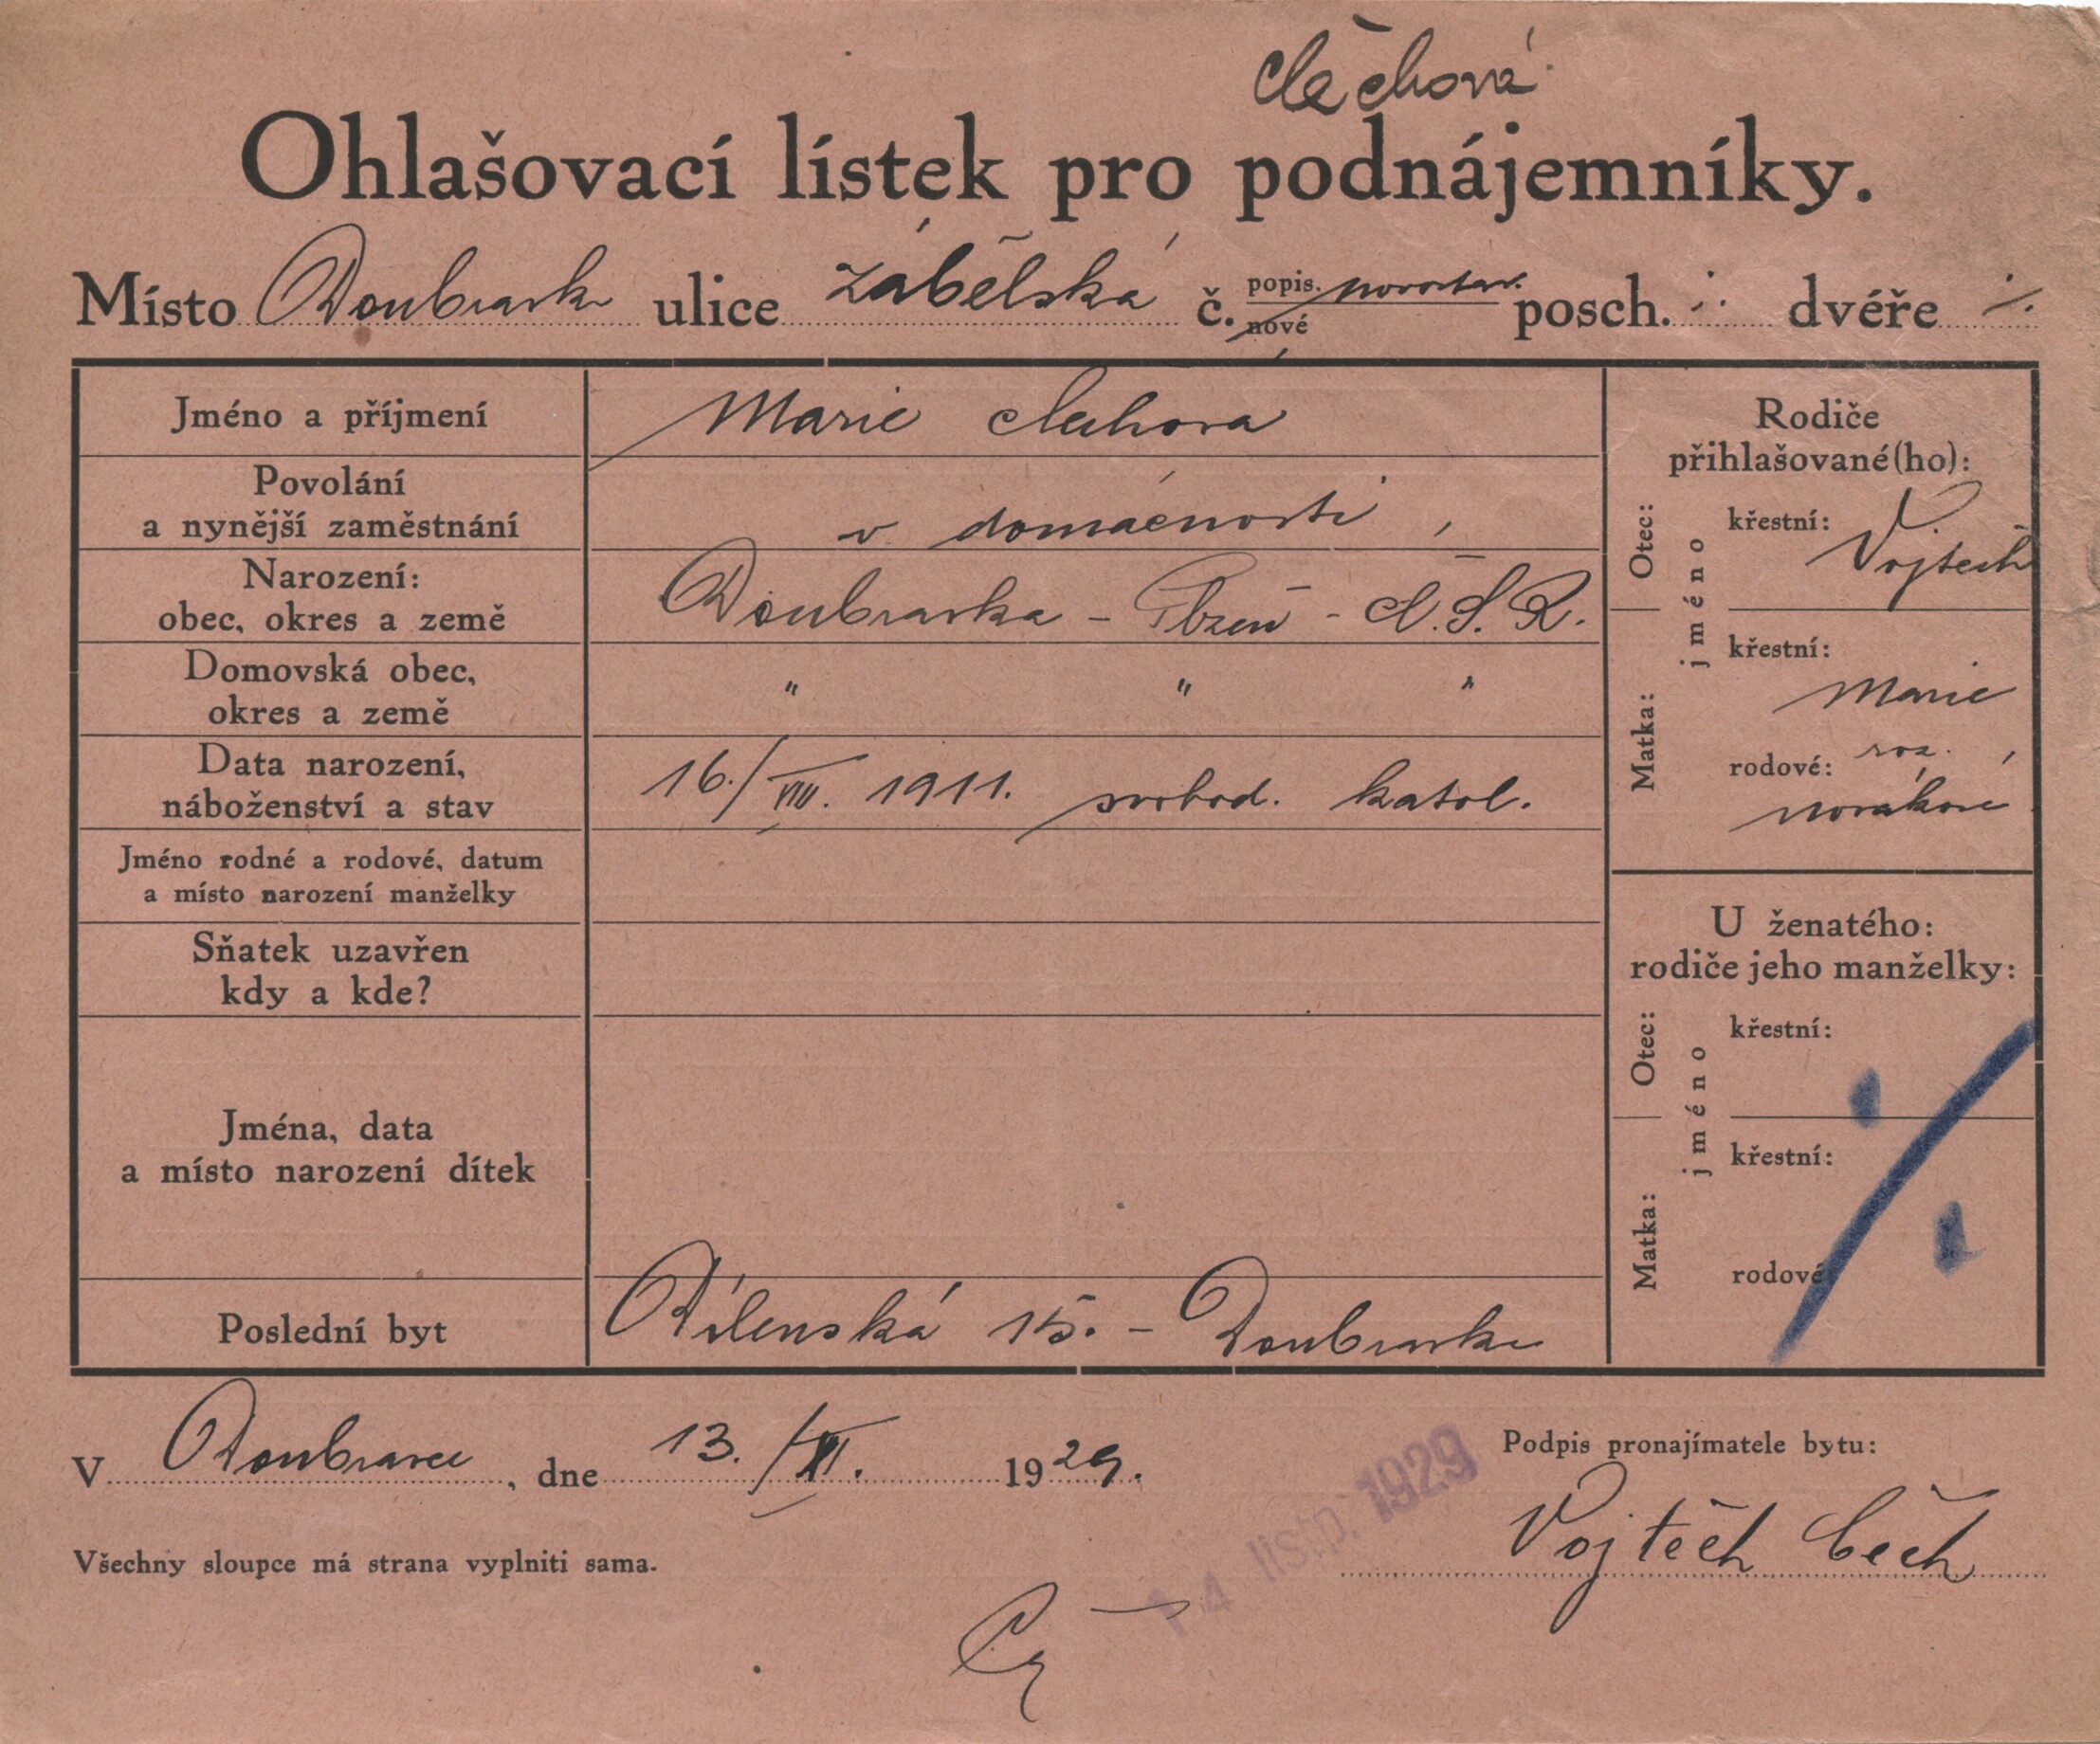 Čechová
Ohlašovací lístek pro podnájemníky.
Místo Doubravka ulice Zábělská č. popis. novostav. posch. ./. dvéře ./.
nové
Jméno a příjmení Marie Čechova
Povolání
a nynější zaměstnání v domácnosti
Narození:
obec, okres a země Doubravka - Plzeň - Č.S.R.
Domovská obec,
okres a země " " "
Data narození,
náboženství a stav 16./VIII. 1911. svobod. katol.
Jméno rodné a rodové, datum
a místo narození manželky
Sňatek uzavřen
kdy a kde?
Jména, data
a místo narození dítek
Poslední byt Dílenská 15. - Doubravka
Rodiče
přihlašované(ho):
Otec: jméno křestní: Vojtěch
Matka: křestní: Marie
rodové: roz.
Nováková
U ženatého:
rodiče jeho manželky:
Otec: jméno křestní:
Matka: křestní:
rodové:
V Doubravce, dne 13./XI. 1929.
14 listp. 1929
Podpis pronajímatele bytu:
Vojtěch Čech
Všechny sloupce má strana vyplniti sama.